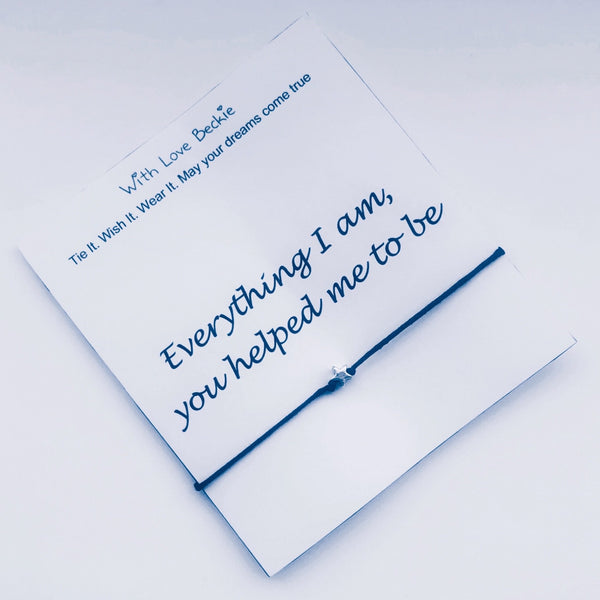 With Love Beckie
Tie It. Wish It. Wear It. May your dreams come true
Everything I am,
you helped me to be